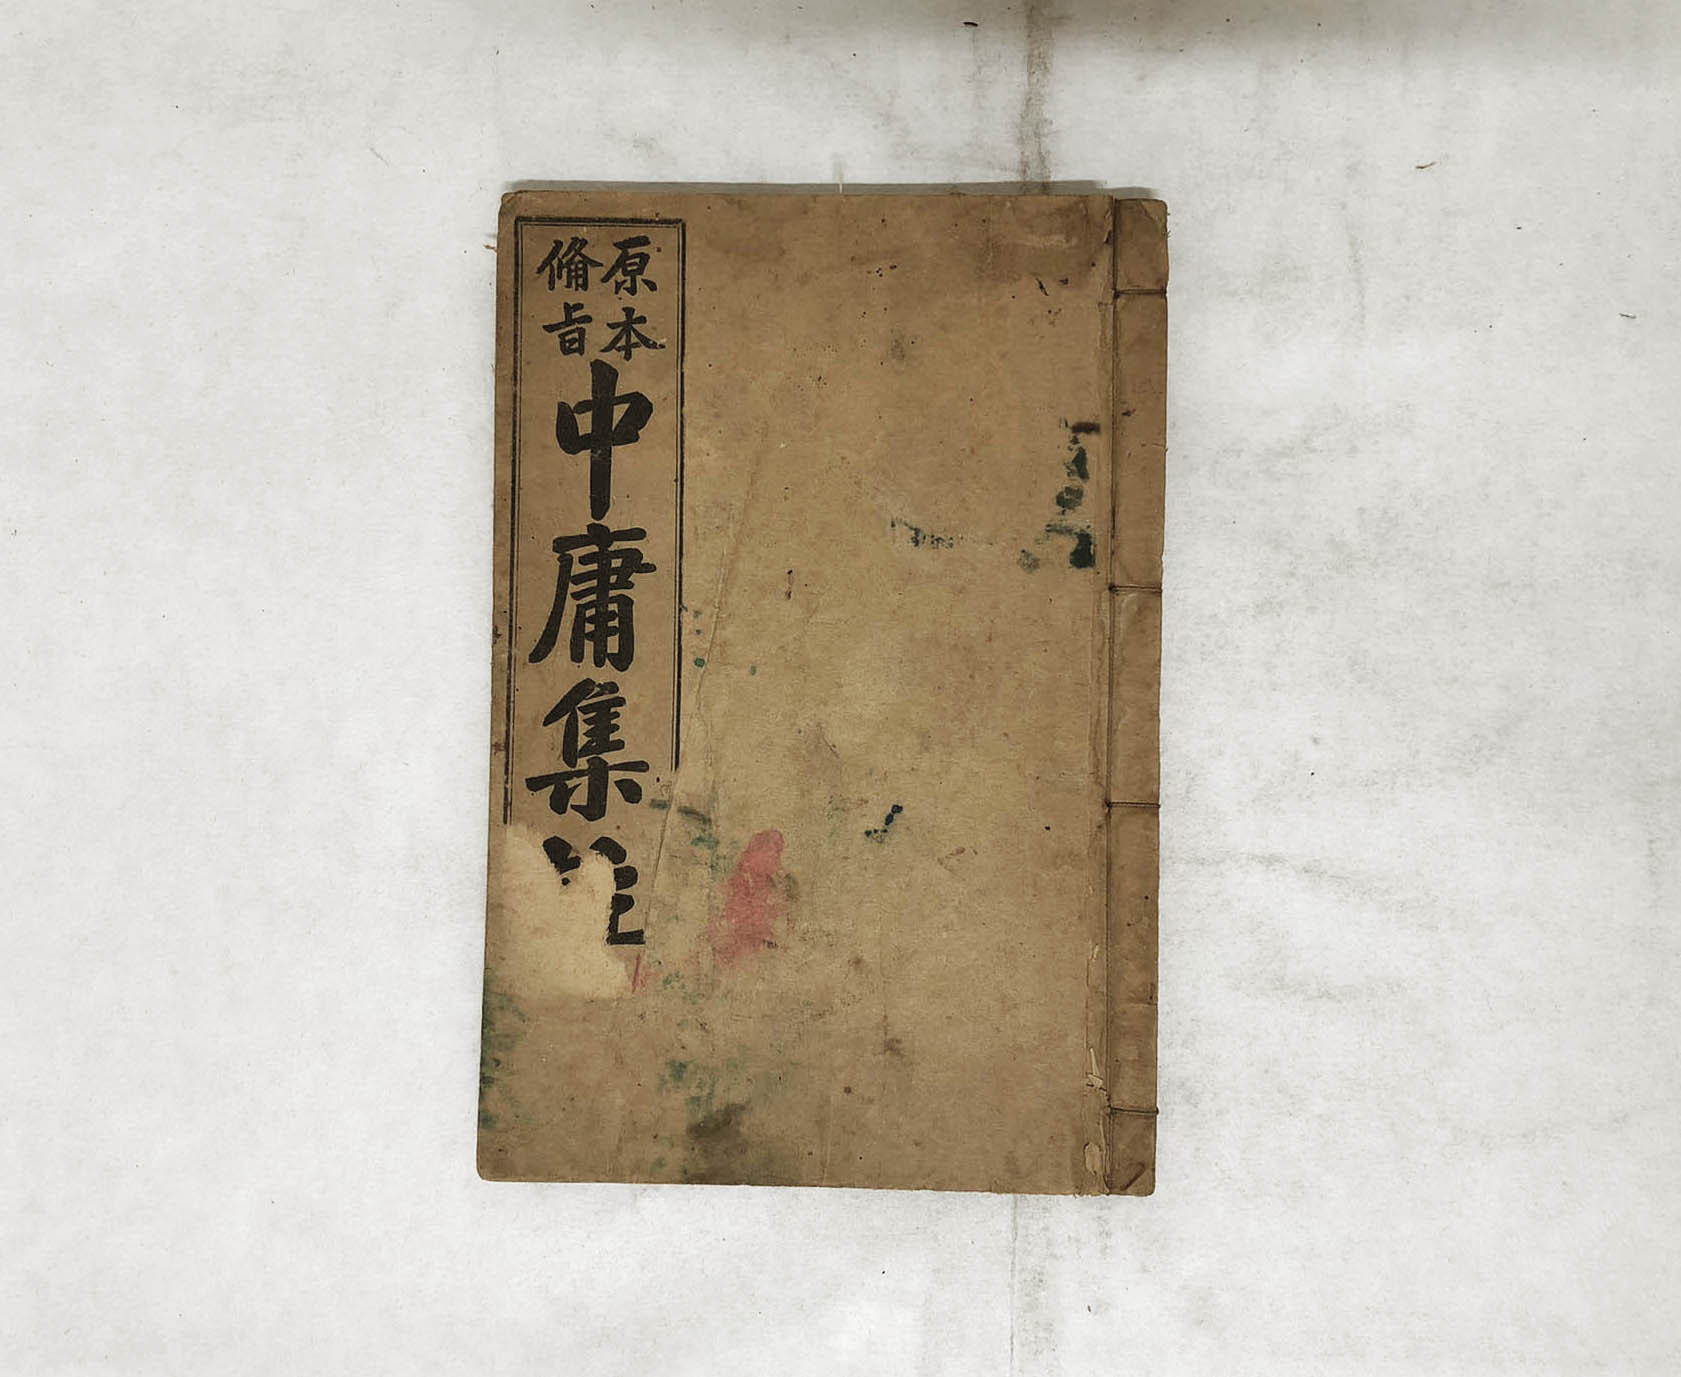 原本
備旨
中庸集